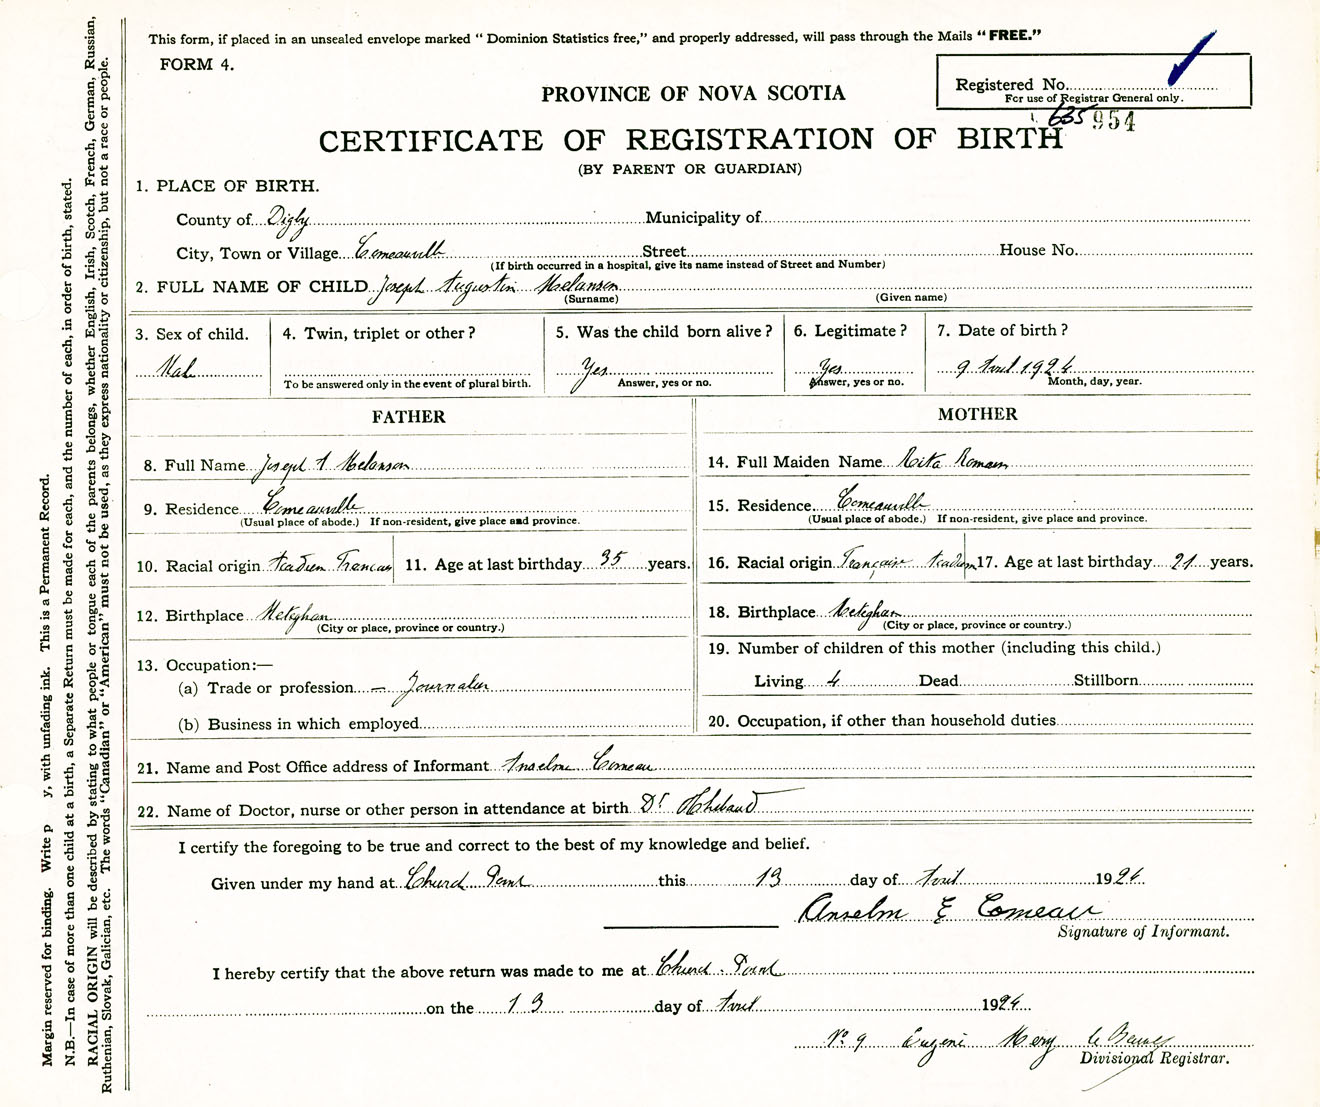 This form, if placed in an unsealed envelope marked “ Dominion Statistics free,” and properly addressed, will pass through the Mails “ FREE.”
FORM 4.
Registered No.
For use of Registrar General only.
PROVINCE OF NOVA SCOTIA
635 954
CERTIFICATE OF REGISTRATION OF BIRTH
(BY PARENT OR GUARDIAN)
1. PLACE OF BIRTH.
County of Digby Municipality of
City, Town or Village Comeauville Street House No.
(If birth occurred in a hospital, give its name instead of Street and Number)
2. FULL NAME OF CHILD Joseph Augustin Melanson
(Surname) (Given name)
3. Sex of child. 4. Twin, triplet or other ? 5. Was the child born alive ? 6. Legitimate ? 7. Date of birth ?
Male Yes Yes 9 Avril 1924
To be answered only in the event of plural birth. Answer, yes or no. Answer, yes or no. Month, day, year.
FATHER MOTHER
8. Full Name Joseph A Melanson 14. Full Maiden Name Rita
9. Residence Comeauville 15. Residence Comeauville
(Usual place of abode.) If non-resident, give place and province. (Usual place of abode.) If non-resident, give place and province.
10. Racial origin Acadien Francais 11. Age at last birthday 35 years. 16. Racial origin Française Acadien 17. Age at last birthday 21 years.
12. Birthplace Meteghan 18. Birthplace Meteghan
(City or place, province or country.) (City or place, province or country.)
13. Occupation:— 19. Number of children of this mother (including this child.)
(a) Trade or profession — Journalier Living 4 Dead Stillborn
(b) Business in which employed 20. Occupation, if other than household duties
21. Name and Post Office address of Informant Anselme Comeau
22. Name of Doctor, nurse or other person in attendance at birth Dr
I certify the foregoing to be true and correct to the best of my knowledge and belief.
Given under my hand at Church Point this 13 day of Avril 1924
Anselm E Comeau
Signature of Informant.
I hereby certify that the above return was made to me at Church Point
on the 13 day of Avril 1924
No 9 Eugéni
Divisional Registrar.
Margin reserved for binding. Write p y, with unfading ink. This is a Permanent Record.
N.B.—In case of more than one child at a birth, a Separate Return must be made for each, and the number of each, in order of birth, stated.
RACIAL ORIGIN will be described by stating to what people or tongue each of the parents belongs, whether English, Irish, Scotch, French, German, Russian,
Ruthenian, Slovak, Galician, etc. The words “Canadian” or “American” must not be used, as they express nationality or citizenship, but not a race or people.